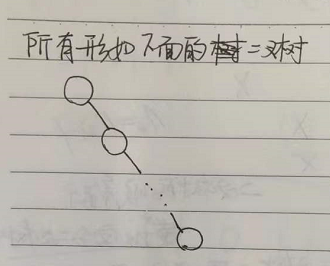 所有形如下面的二叉树